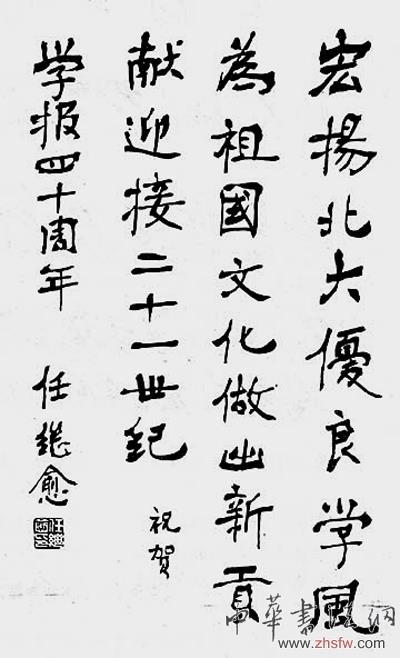 宏揚北大優良学風
為祖國文化做出新貢
献迎接二十一世紀
祝贺
学报四十周年
任继愈
中華書法網
www.zhsfw.com